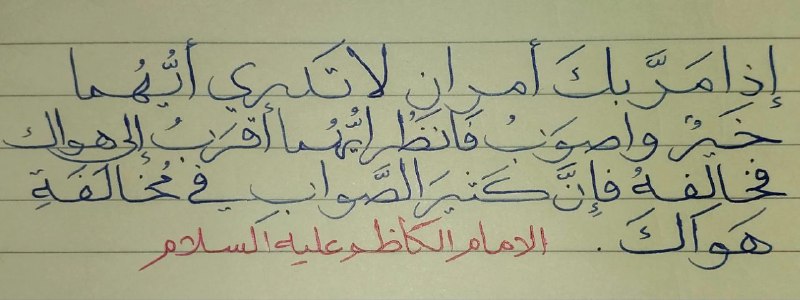 إذا مَرَّ بكَ أمران لا تَدري أيُّهُما
خَيرٌ واصوَبُ فَانظُر ايُّهُما أقرَبُ إلى هواك
فخالفهُ فإنَّ كَثيرَ الصَّواب في مُخالَفَةِ
هَواكَ . الامام الكاظم عليه السلام